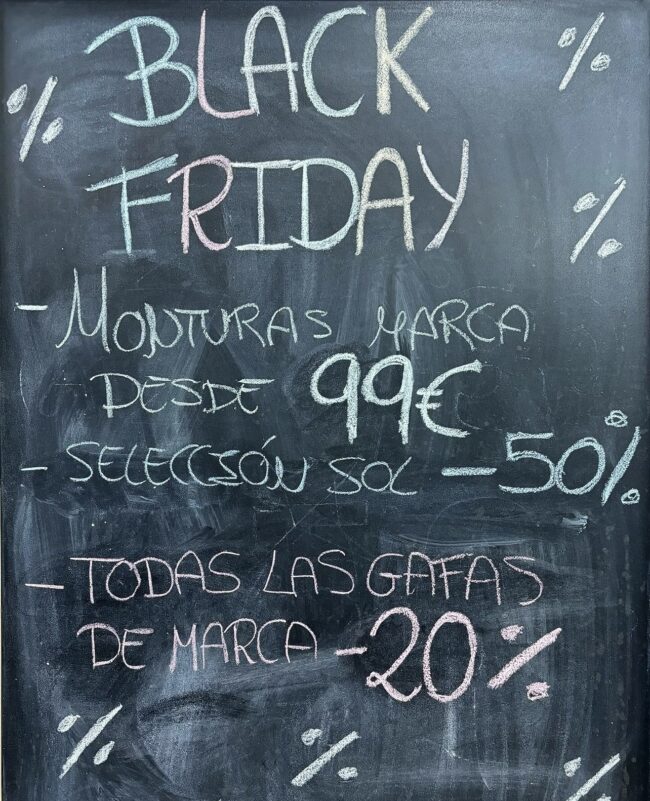 BLACK
FRIDAY
- MONTURAS MARCA
DESDE 99€
- SELECCIÓN SOL -50%
- TODAS LAS GAFAS
DE MARCA -20%